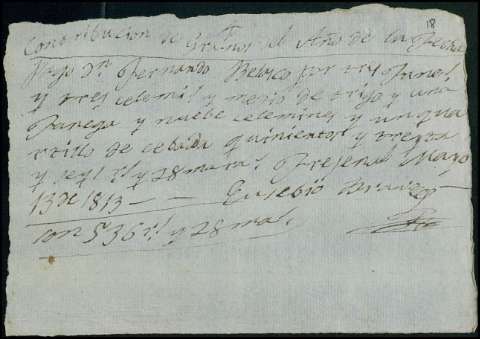 18
Contribucion de Granos el Año de la Fecha
Pago Dn Fernando Belasco por tres Faneg.s
y tres celemi.s y medio de trigo y una
Fanega y nuebe celemines y un qua
rtillo de cebada quinientos y treynta
y seys r.s y 28 mara.s Frejenal Mayo
13 de 1813 — — Eusebio
Son 536 r.s y 28 ma.s